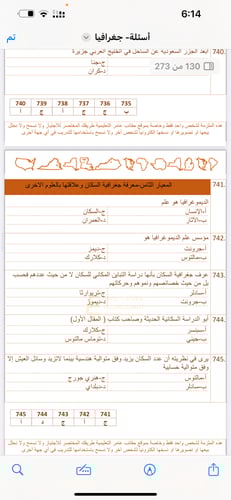 6:14
أسئلة- جغرافيا
تم
740. أبعد الجزر السعودية عن الساحل في الخليج العربي جزيرة
ج-جنا
د-كران
130 من 273
735 736 737 738 739 740
741. المعيار الثامن-معرفة جغرافية السكان وعلاقتها بالعلوم الأخرى
الديموغرافيا هو علم
أ-الإنسان ج-السكان
ب-الآثار د-العمران
742. مؤسس علم الديموغرافيا هو
أ-جرونت ج-ديمز
ب-مالتوس د-كلارك
743. عرف جغرافية السكان بأنها دراسة التباين المكاني للسكان لا من حيث عددهم فحسب بل من حيث خصائصهم ونموهم وحركاتهم
أ-سادلر ج-تريوارثا
ب-جرونت د-ديموز
744. أبو الدراسة السكانية الحديثة وصاحب كتاب ( المقال الأول)
أ-سبنسر ج-كلارك
ب-جيني د-توماس مالتوس
745. يرى في نظريته أن عدد السكان يزيد وفق متوالية هندسية بينما لاتزيد وسائل العيش إلا وفق متوالية حسابية
أ-مالتوس ج-هنري جورج
ب-سادلر
741 742 743 744 745
ج أ ج د أ